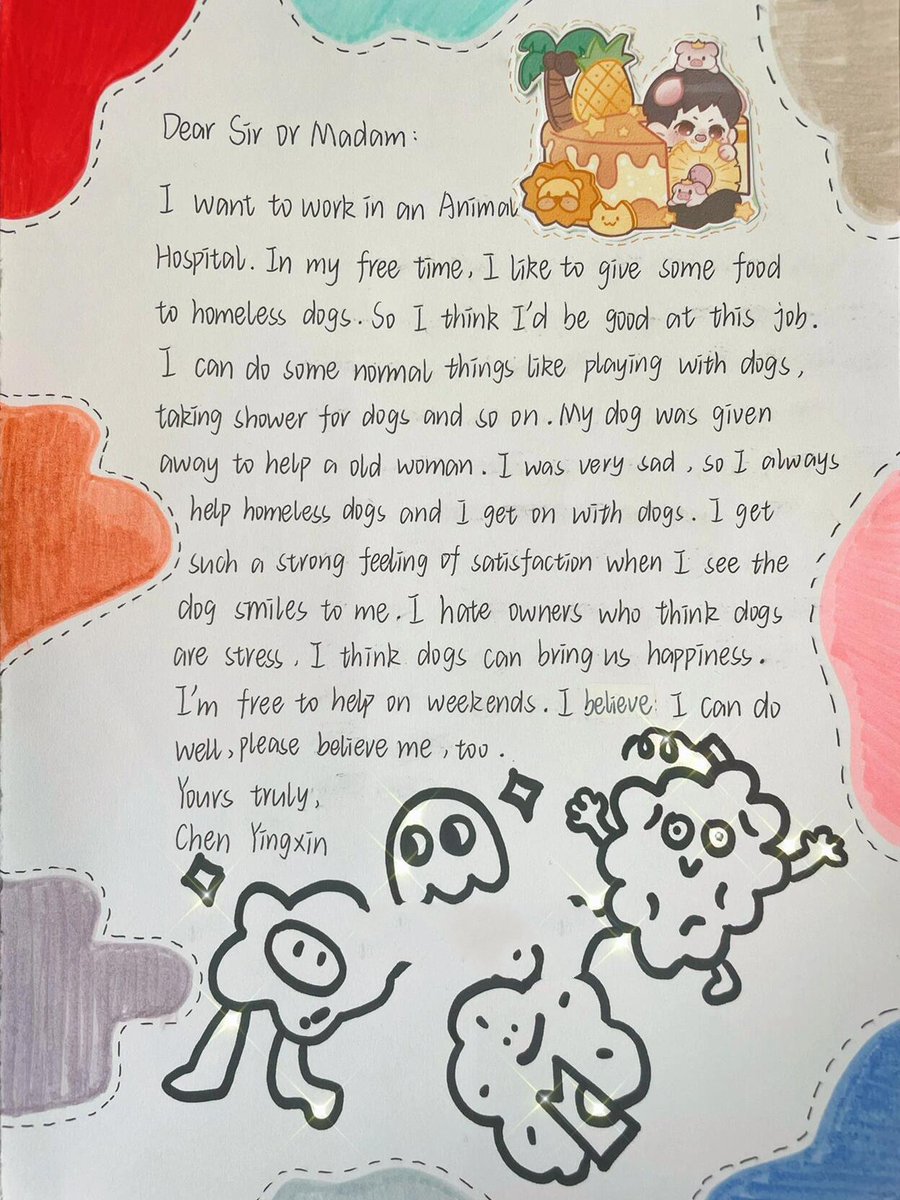 Dear Sir or Madam:
I want to work in an Animal
Hospital. In my free time, I like to give some food
to homeless dogs. So I think I'd be good at this job.
I can do some normal things like playing with dogs,
taking shower for dogs and so on. My dog was given
away to help a old woman. I was very sad, so I always
help homeless dogs and I get on with dogs. I get
such a strong feeling of satisfaction when I see the
dog smiles to me. I hate owners who think dogs
are stress. I think dogs can bring us happiness.
I'm free to help on weekends. I believe: I can do
well, please believe me, too.
Yours truly,
Chen Yingxin